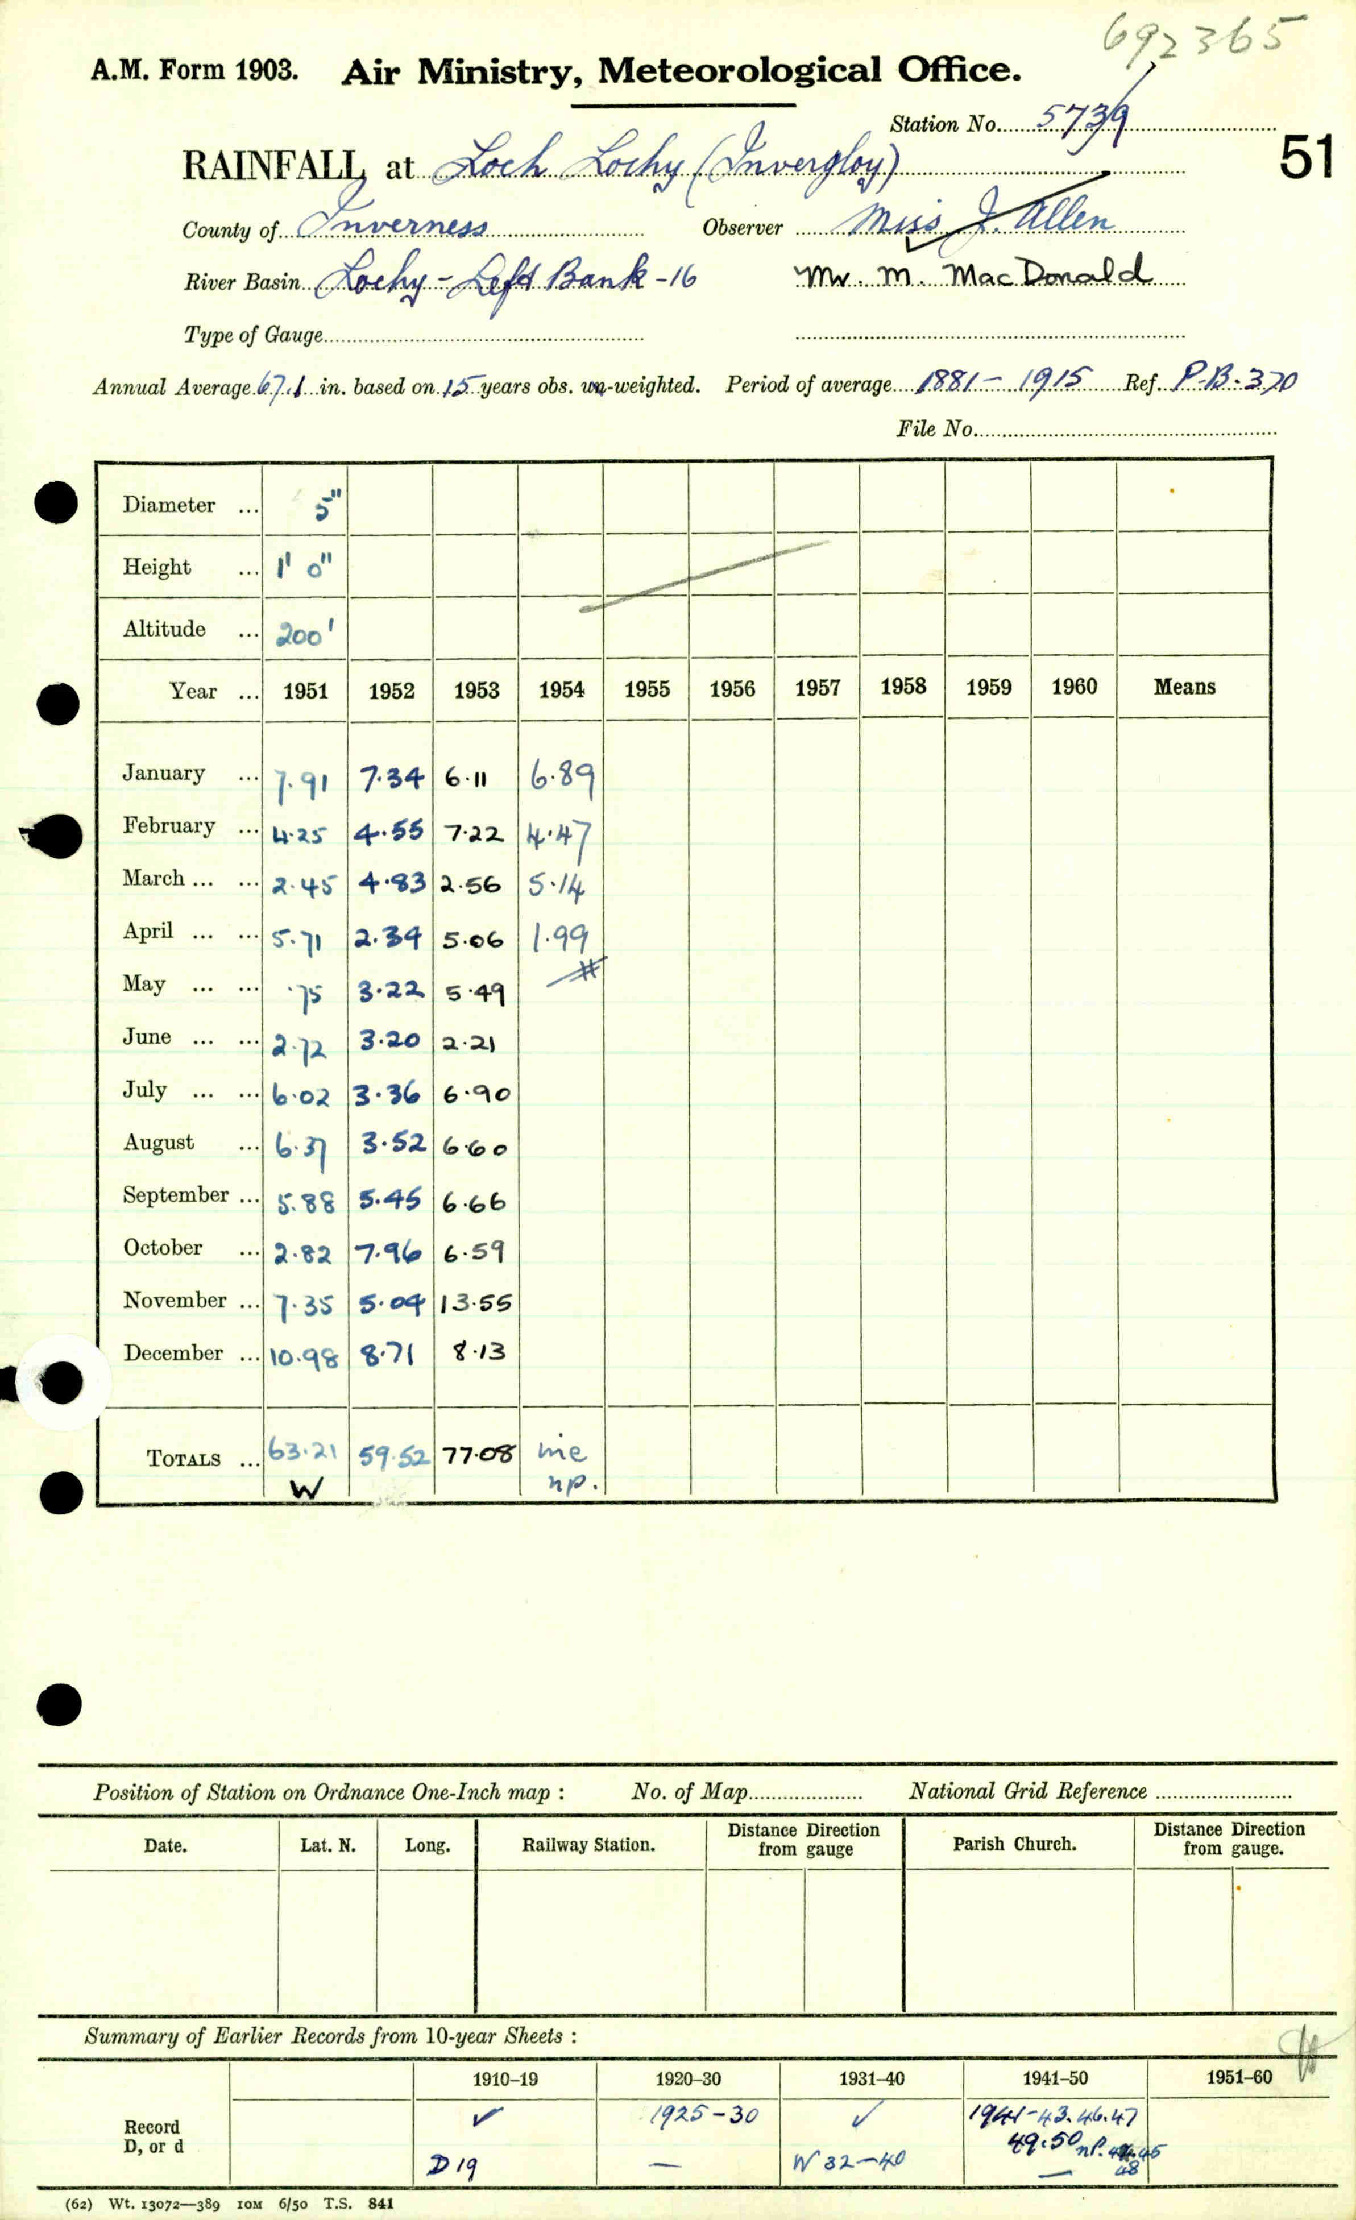 692365
A.M. Form 1903. Air Ministry, Meteorological Office.
Station No. 5739
51
RAINFALL at Loch Lochy (Invergloy)
County of Inverness Observer Miss J. Allen
River Basin Lochy - Left Bank - 16 Mr. M. MacDonald
Type of Gauge
Annual Average 67.1 in. based on 15 years obs. un-weighted. Period of average 1881 - 1915 Ref. P.B. 370
File No.
Diameter ... 5"
Height ... 1' 0"
Altitude ... 200'
Year ... 1951 1952 1953 1954 1955 1956 1957 1958 1959 1960 Means
January ... 7.91 7.34 6.11 6.89
February ... 4.25 4.55 7.22 4.47
March ... ... 2.45 4.83 2.56 5.14
April ... ... 5.71 2.34 5.06 1.99
May ... ... .75 3.22 5.49
June ... ... 2.72 3.20 2.21
July ... ... 6.02 3.36 6.90
August ... 6.37 3.52 6.60
September ... 5.88 5.45 6.66
October ... 2.82 7.96 6.59
November ... 7.35 5.04 13.55
December ... 10.98 8.71 8.13
TOTALS ... 63.21 59.52 77.08 inc
W np.
Position of Station on Ordnance One-Inch map : No. of Map National Grid Reference
Date. Lat. N. Long. Railway Station. Distance from Direction gauge Parish Church. Distance from Direction gauge.
Summary of Earlier Records from 10-year Sheets :
1910–19 1920–30 1931–40 1941–50 1951–60
Record ✓ 1925-30 ✓ 1941-43.46.47
D, or d 49.50 np. 45
D19 — W 32-40 — 48
(62) Wt. 13072—389 10M 6/50 T.S. 841